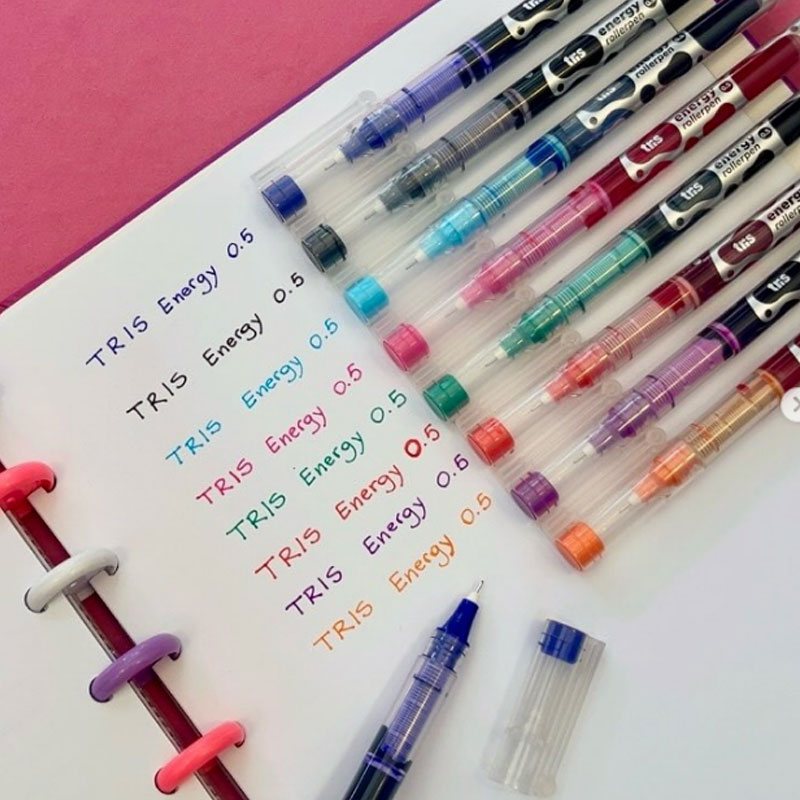 TRIS Energy 0.5
TRIS Energy 0.5
TRIS Energy 0.5
TRIS Energy 0.5
TRIS Energy 0.5
TRIS Energy 0.5
TRIS Energy 0.5
TRIS Energy 0.5
tris
tris energy rollerpen
tris energy rollerpen
tris energy rollerpen 0.5
tris energy rollerpen 0.5
tris energy rollerpen
tris